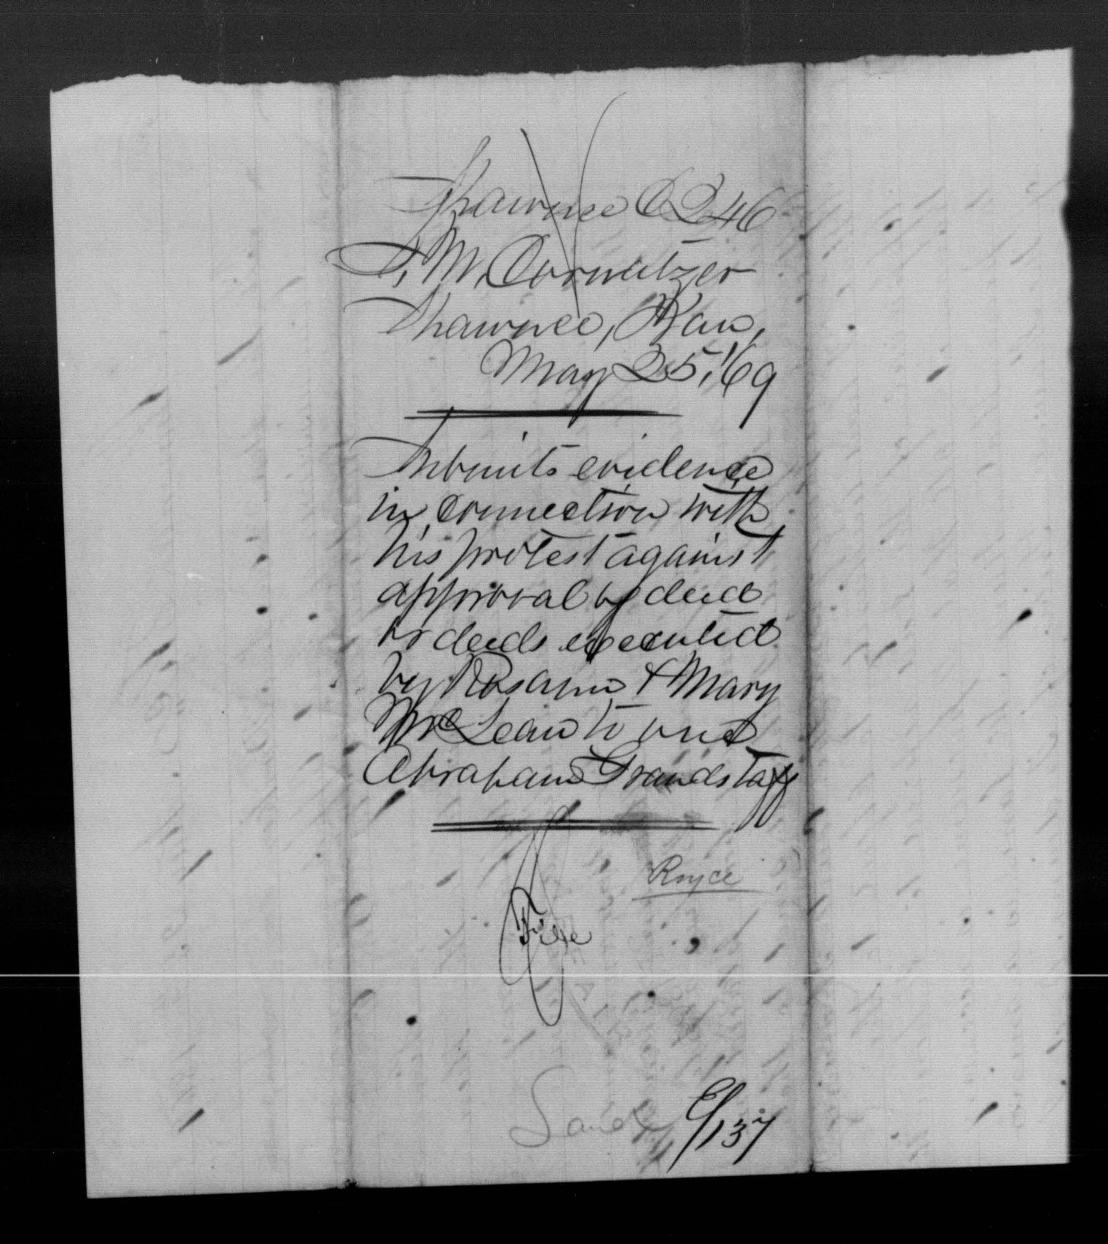 Shawnee C 246
S. M. Cornatzer
Shawnee, Kan,
May 25, '69
Submits evidence
in connection with
his protest against
approval of deed
or deeds executed
by Rosann & Mary
McLean to one
Abraham Grandstaff
Royce
File
Land
C/137